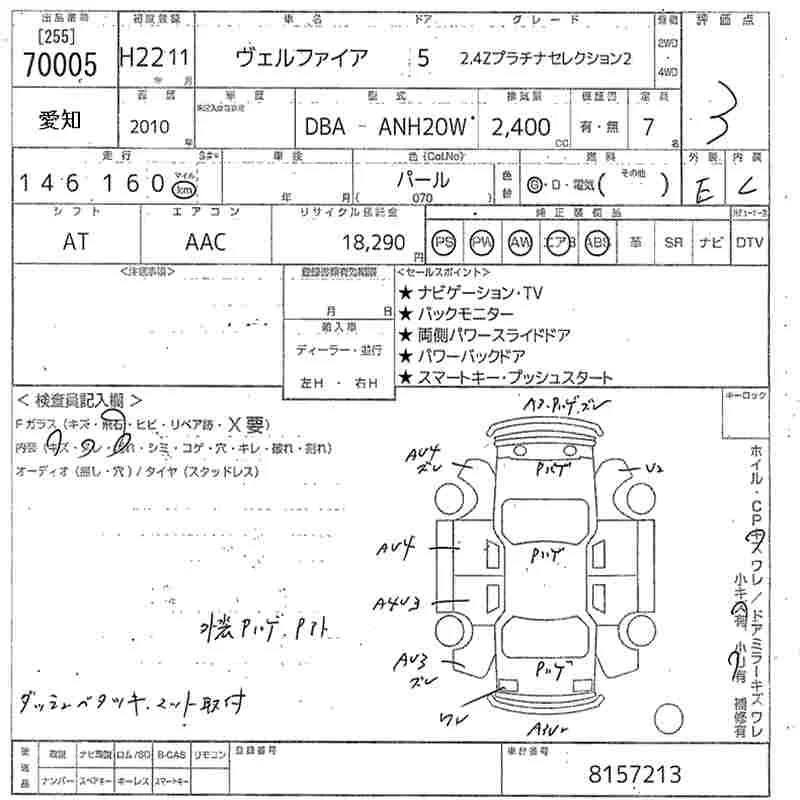 出品番号 初度登録 車名 ドア グレード 駆動 評価点
[255]
70005 H22 11 ヴェルファイア 5 2.4Zプラチナセレクション2 2WD
・
4WD
年 月
3
愛知 年式 車歴 型式 排気量 機種書 定員
2010 年 DBA - ANH20W 2,400 CC 有・無 7 名
走行 車検 色(Col.No) 燃料 外装 内装
146160 マイル km 年 月 パール (070) 色替 G・D・電気( その他 ) E C
シフト エアコン リサイクル預託金 純正装備品
AT AAC 18,290 円 PS PW AW エアB ABS 革 SR ナビ DTV
<注意事項> 登録書類有効期限 <セールスポイント>
月 日
★ ナビゲーション・TV
★ バックモニター
輸入車
★ 両側パワースライドドア
ディーラー・並行
★ パワーバックドア
左H ・ 右H
★ スマートキー・プッシュスタート
< 検査員記入欄 > キーロック
Fガラス (キズ・飛石・ヒビ・リペア跡・X要)
内装 (キズ・スレ・汚れ・シミ・コゲ・穴・キレ・破れ・割れ)
オーディオ (無し・穴) / タイヤ (スタッドレス)
A3.Pハゲ.ズレ
AU4
ズレ
Pハゲ
U2
AU4
Pハゲ
A4U3
外装Pハゲ.Pヌケ
AU3
ズレ
Pハゲ
ワレ
ダッシュベタツキ.マット取付
ホイル・CPキズ ワレ / ドアミラーキズ ワレ
小キズ有 小凹有 補修有
返品 取説 ナビ取説 ロム/SD B-CAS リモコン 登録番号 車台番号
ナンバー スペアキー キーレス スマートキー
8157213